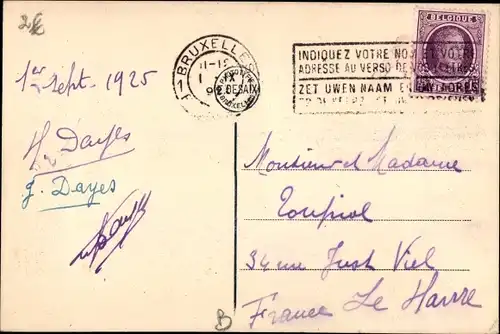 2€
1er Sept. 1925
H. Dayes
J. Dayes
BRUXELLES
11-15
DESAIX
BRUXELLES
INDIQUEZ VOTRE NOM ET VOTRE
ADRESSE AU VERSO DE VOS LETTRES
ZET UWEN NAAM EN ADRES
BELGIQUE
Monsieur et Madame
Toupiol
34 rue Just Viel
France Le Havre
B